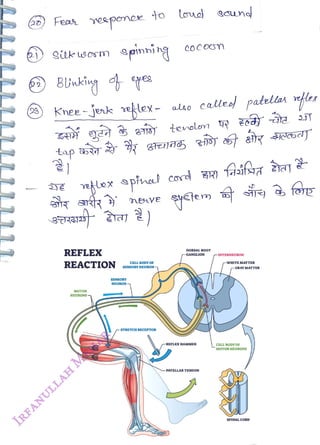 (20) Fear response to loud sound
(21) Silkworm spinning cocoon
(22) Blinking of eyes
(23) Knee-jerk reflex - also called patellar reflex
इसमें घुटने के आगे tendon पर हल्की चोट या
tap करने से पैर अचानक आगे की ओर
है।
यह reflex spinal cord द्वारा नियंत्रित होता है
और शरीर में nerve system की जाँच के लिए
उत्तरदायी होता है।
REFLEX
REACTION
DORSAL ROOT
GANGLION
INTERNEURON
WHITE MATTER
GRAY MATTER
CELL BODY OF
SENSORY NEURON
SENSORY
NEURON
MOTOR
NEURONS
STRETCH RECEPTOR
REFLEX HAMMER
CELL BODY OF
MOTOR NEURONS
PATELLAR TENDON
SPINAL CORD
IRFANULLAH